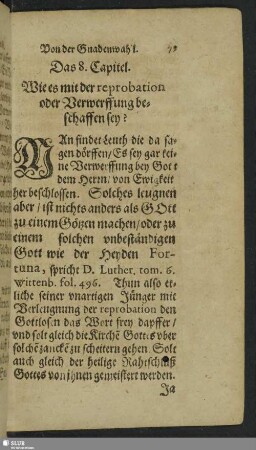 Von der Gnadenwahl.
Das 8. Capitel.
Wie es mit der reprobation
oder Verwerffung be-
schaffen sey?
MAn findet Leuth die da sa-
gen dörffen/Es sey gar kei-
ne Verwerffung bey Gott
dem Herrn/von Ewigkeit
her beschlossen. Solches leugnen
aber/ist nichts anders als GOtt
zu einem Götzen machen/oder zu
einem solchen vnbeständigen
Gott wie der Heyden For-
tuna, spricht D. Luther. tom. 6.
wittenb. fol. 496. Thun also et-
liche seiner vnartigen Jünger mit
Verleugnung der reprobation den
Gottlosen das Wort frey dapffer/
vnd solt gleich die Kirchē Gottes vber
solchē zanckē zu scheitern gehen. Solt
auch gleich der heilige Rahtschluß
Gottes von jhnen gemeistert werden.
Ja
SLUB